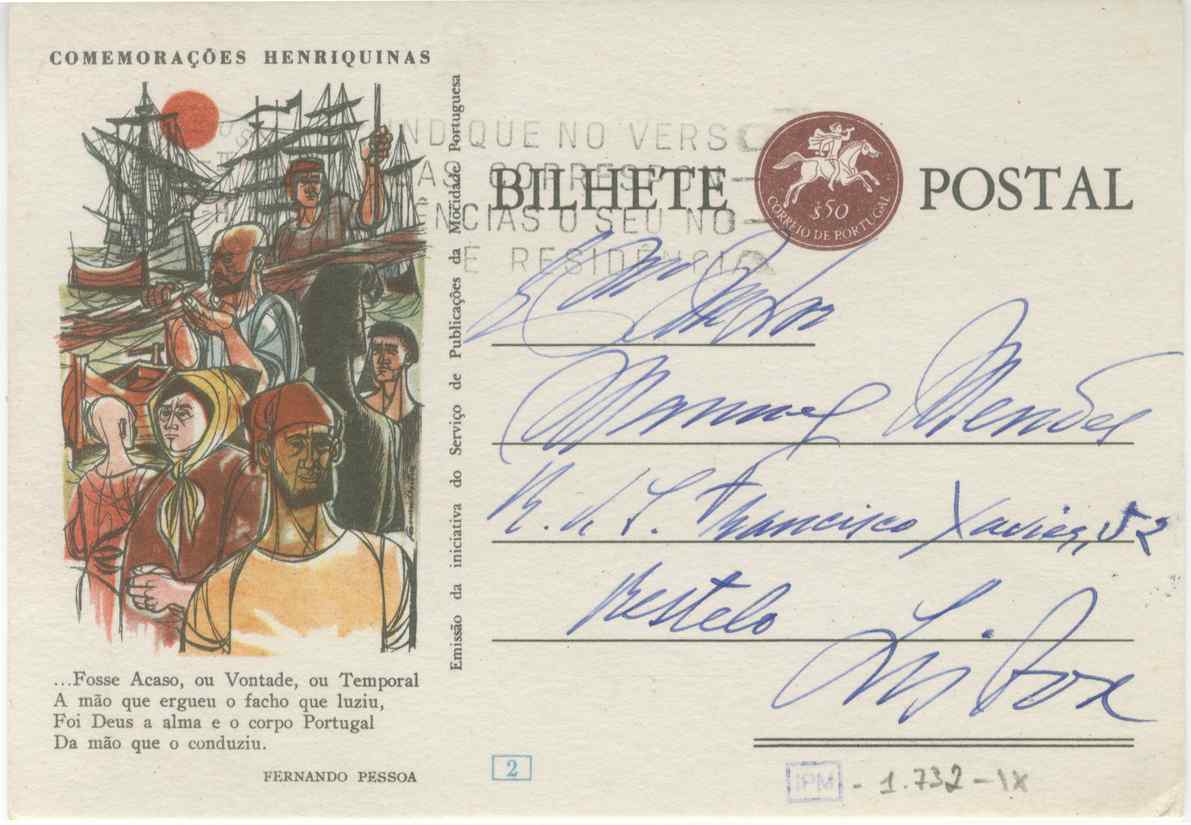 COMEMORAÇÕES HENRIQUINAS
...Fosse Acaso, ou Vontade, ou Temporal
A mão que ergueu o facho que luziu,
Foi Deus a alma e o corpo Portugal
Da mão que o conduziu.
FERNANDO PESSOA
Emissão da iniciativa do Serviço de Publicações da Mocidade Portuguesa
INDIQUE NO VERSO
DAS CORRESPON-
DÊNCIAS O SEU NO-
E RESIDÊNCIA
BILHETE POSTAL
$50
CORREIO DE PORTUGAL
Manuel Mendes
R. S. Francisco Xavier, 52
Restelo
Lisboa
2
IPM - 1.732-IX